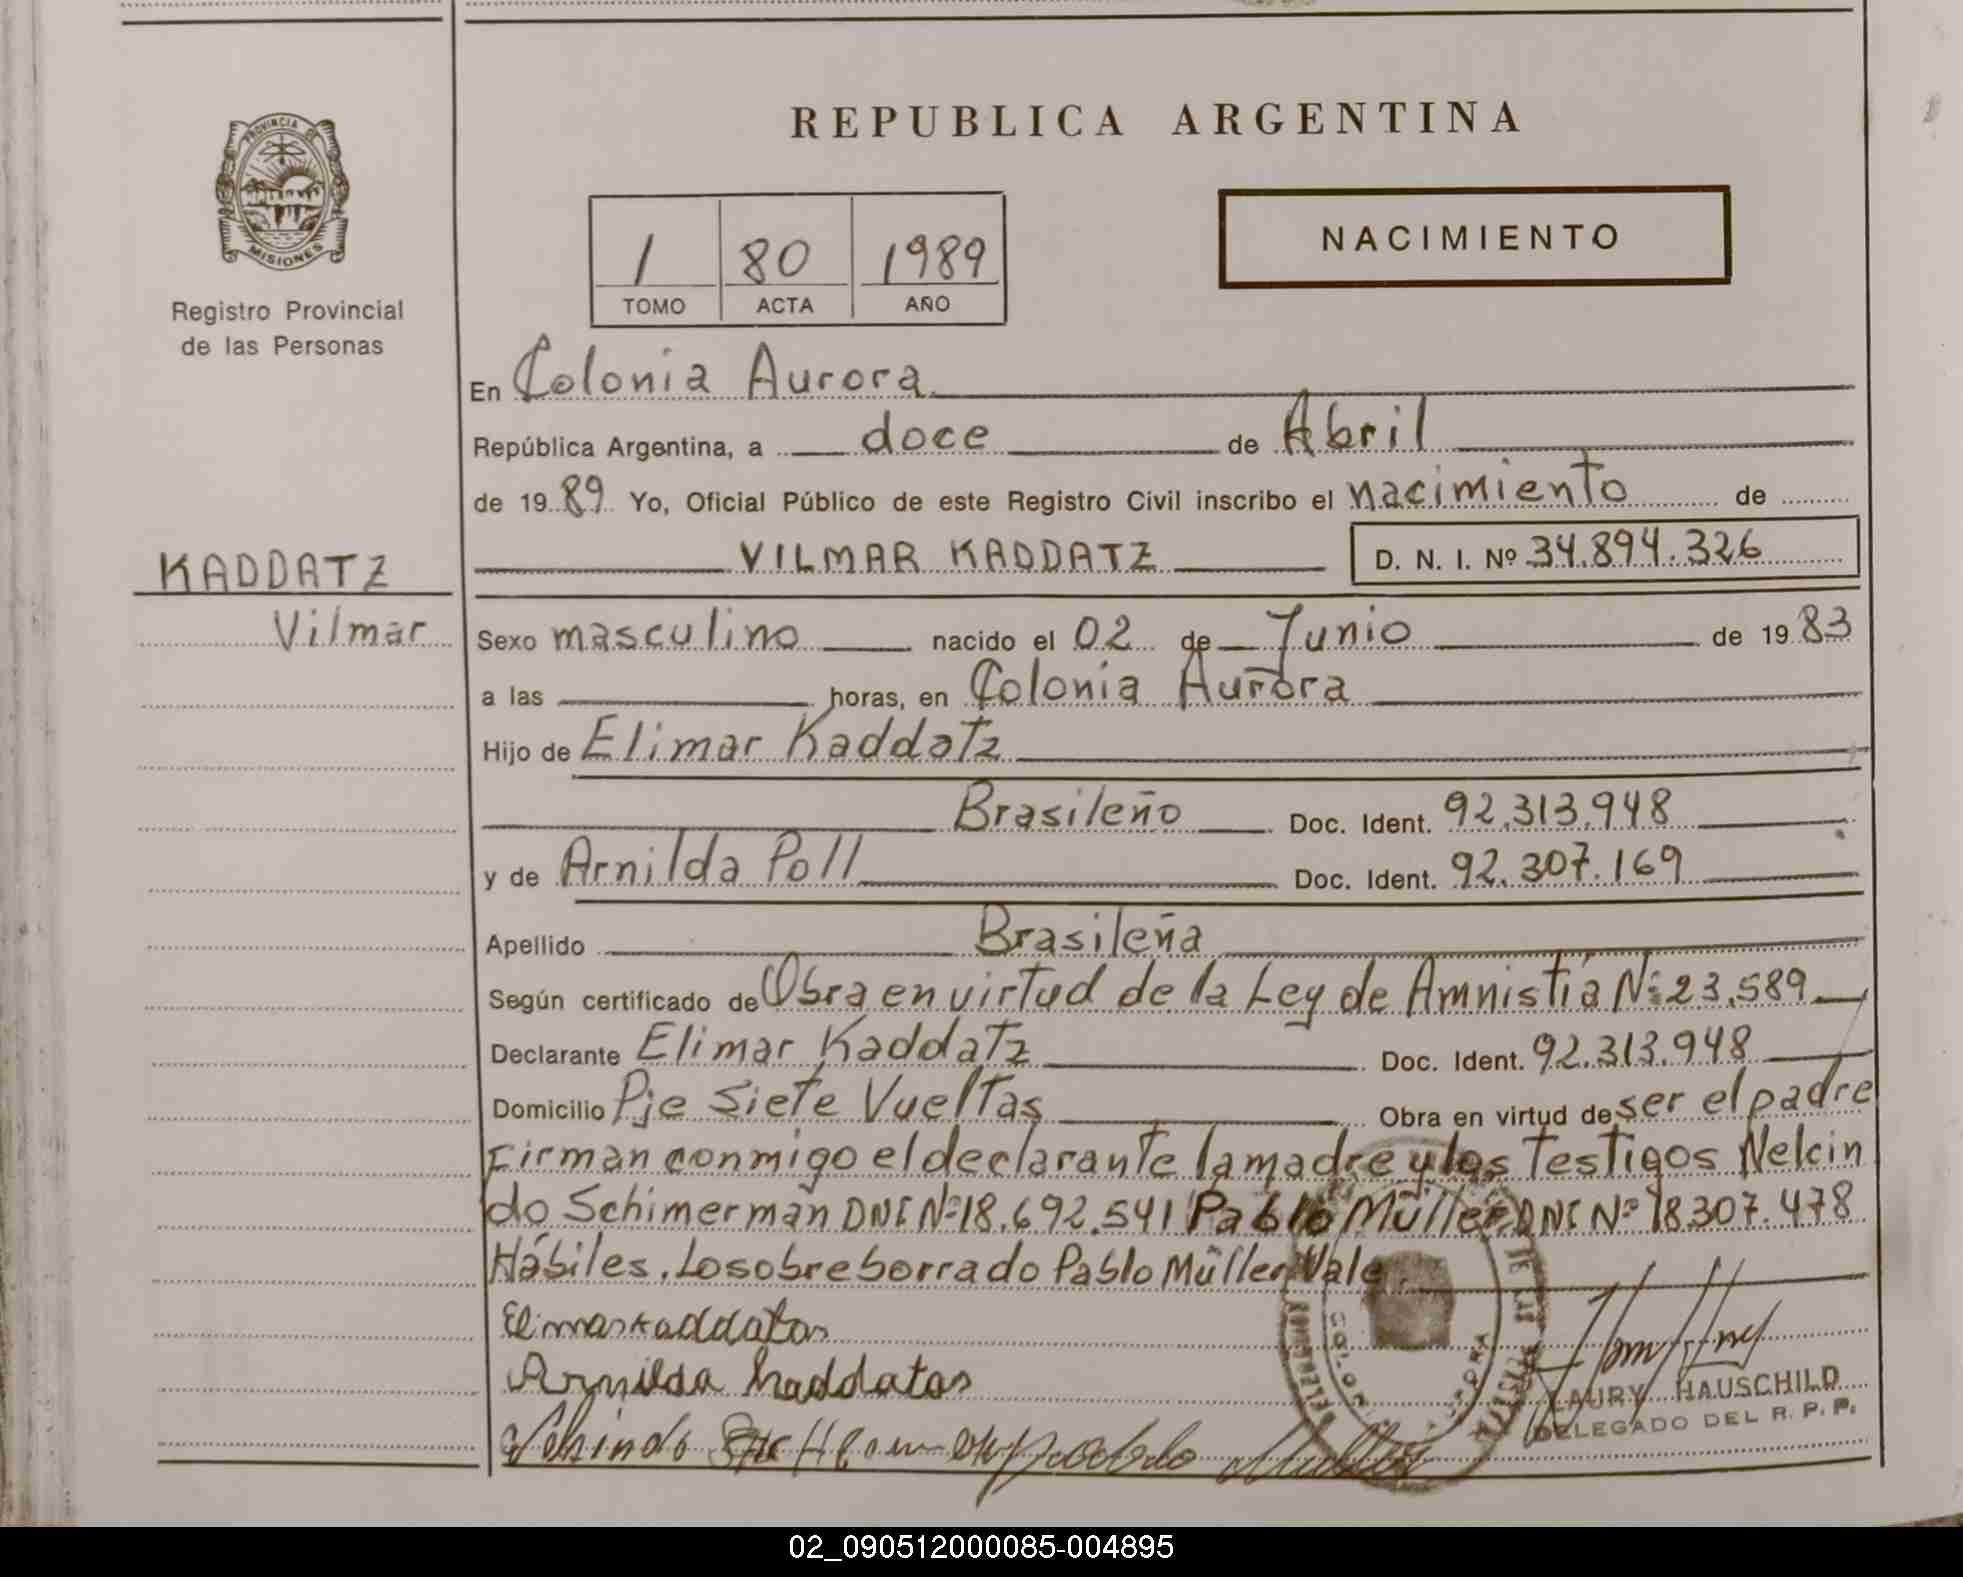 REPUBLICA ARGENTINA
PROVINCIA DE
MISIONES
Registro Provincial
de las Personas
1 80 1989
TOMO ACTA AÑO
NACIMIENTO
En Colonia Aurora
República Argentina, a doce de Abril
de 1989 Yo, Oficial Público de este Registro Civil inscribo el nacimiento de
KADDATZ
Vilmar
VILMAR KADDATZ D. N. I. Nº 34.894.326
Sexo masculino nacido el 02 de Junio de 1983
a las horas, en Colonia Aurora
Hijo de Elimar Kaddatz
Brasileño Doc. Ident. 92.313.948
y de Arnilda Poll Doc. Ident. 92.307.169
Apellido Brasileña
Según certificado de Obra en virtud de la Ley de Amnistía Nº 23.589
Declarante Elimar Kaddatz Doc. Ident. 92.313.948
Domicilio Pje Siete Vueltas Obra en virtud de ser el padre
Firman conmigo el declarante la madre y los Testigos Nelcin
do Schimerman DNI Nº 18.692.541 Pablo Müller DNI Nº 18.307.478
Hábiles. Lo sobreborrado Pablo Müller Vale.
Elimar Kaddatas
Arnilda Kaddatas
LAURY HAUSCHILD
DELEGADO DEL R. P. P.
02_090512000085-004895